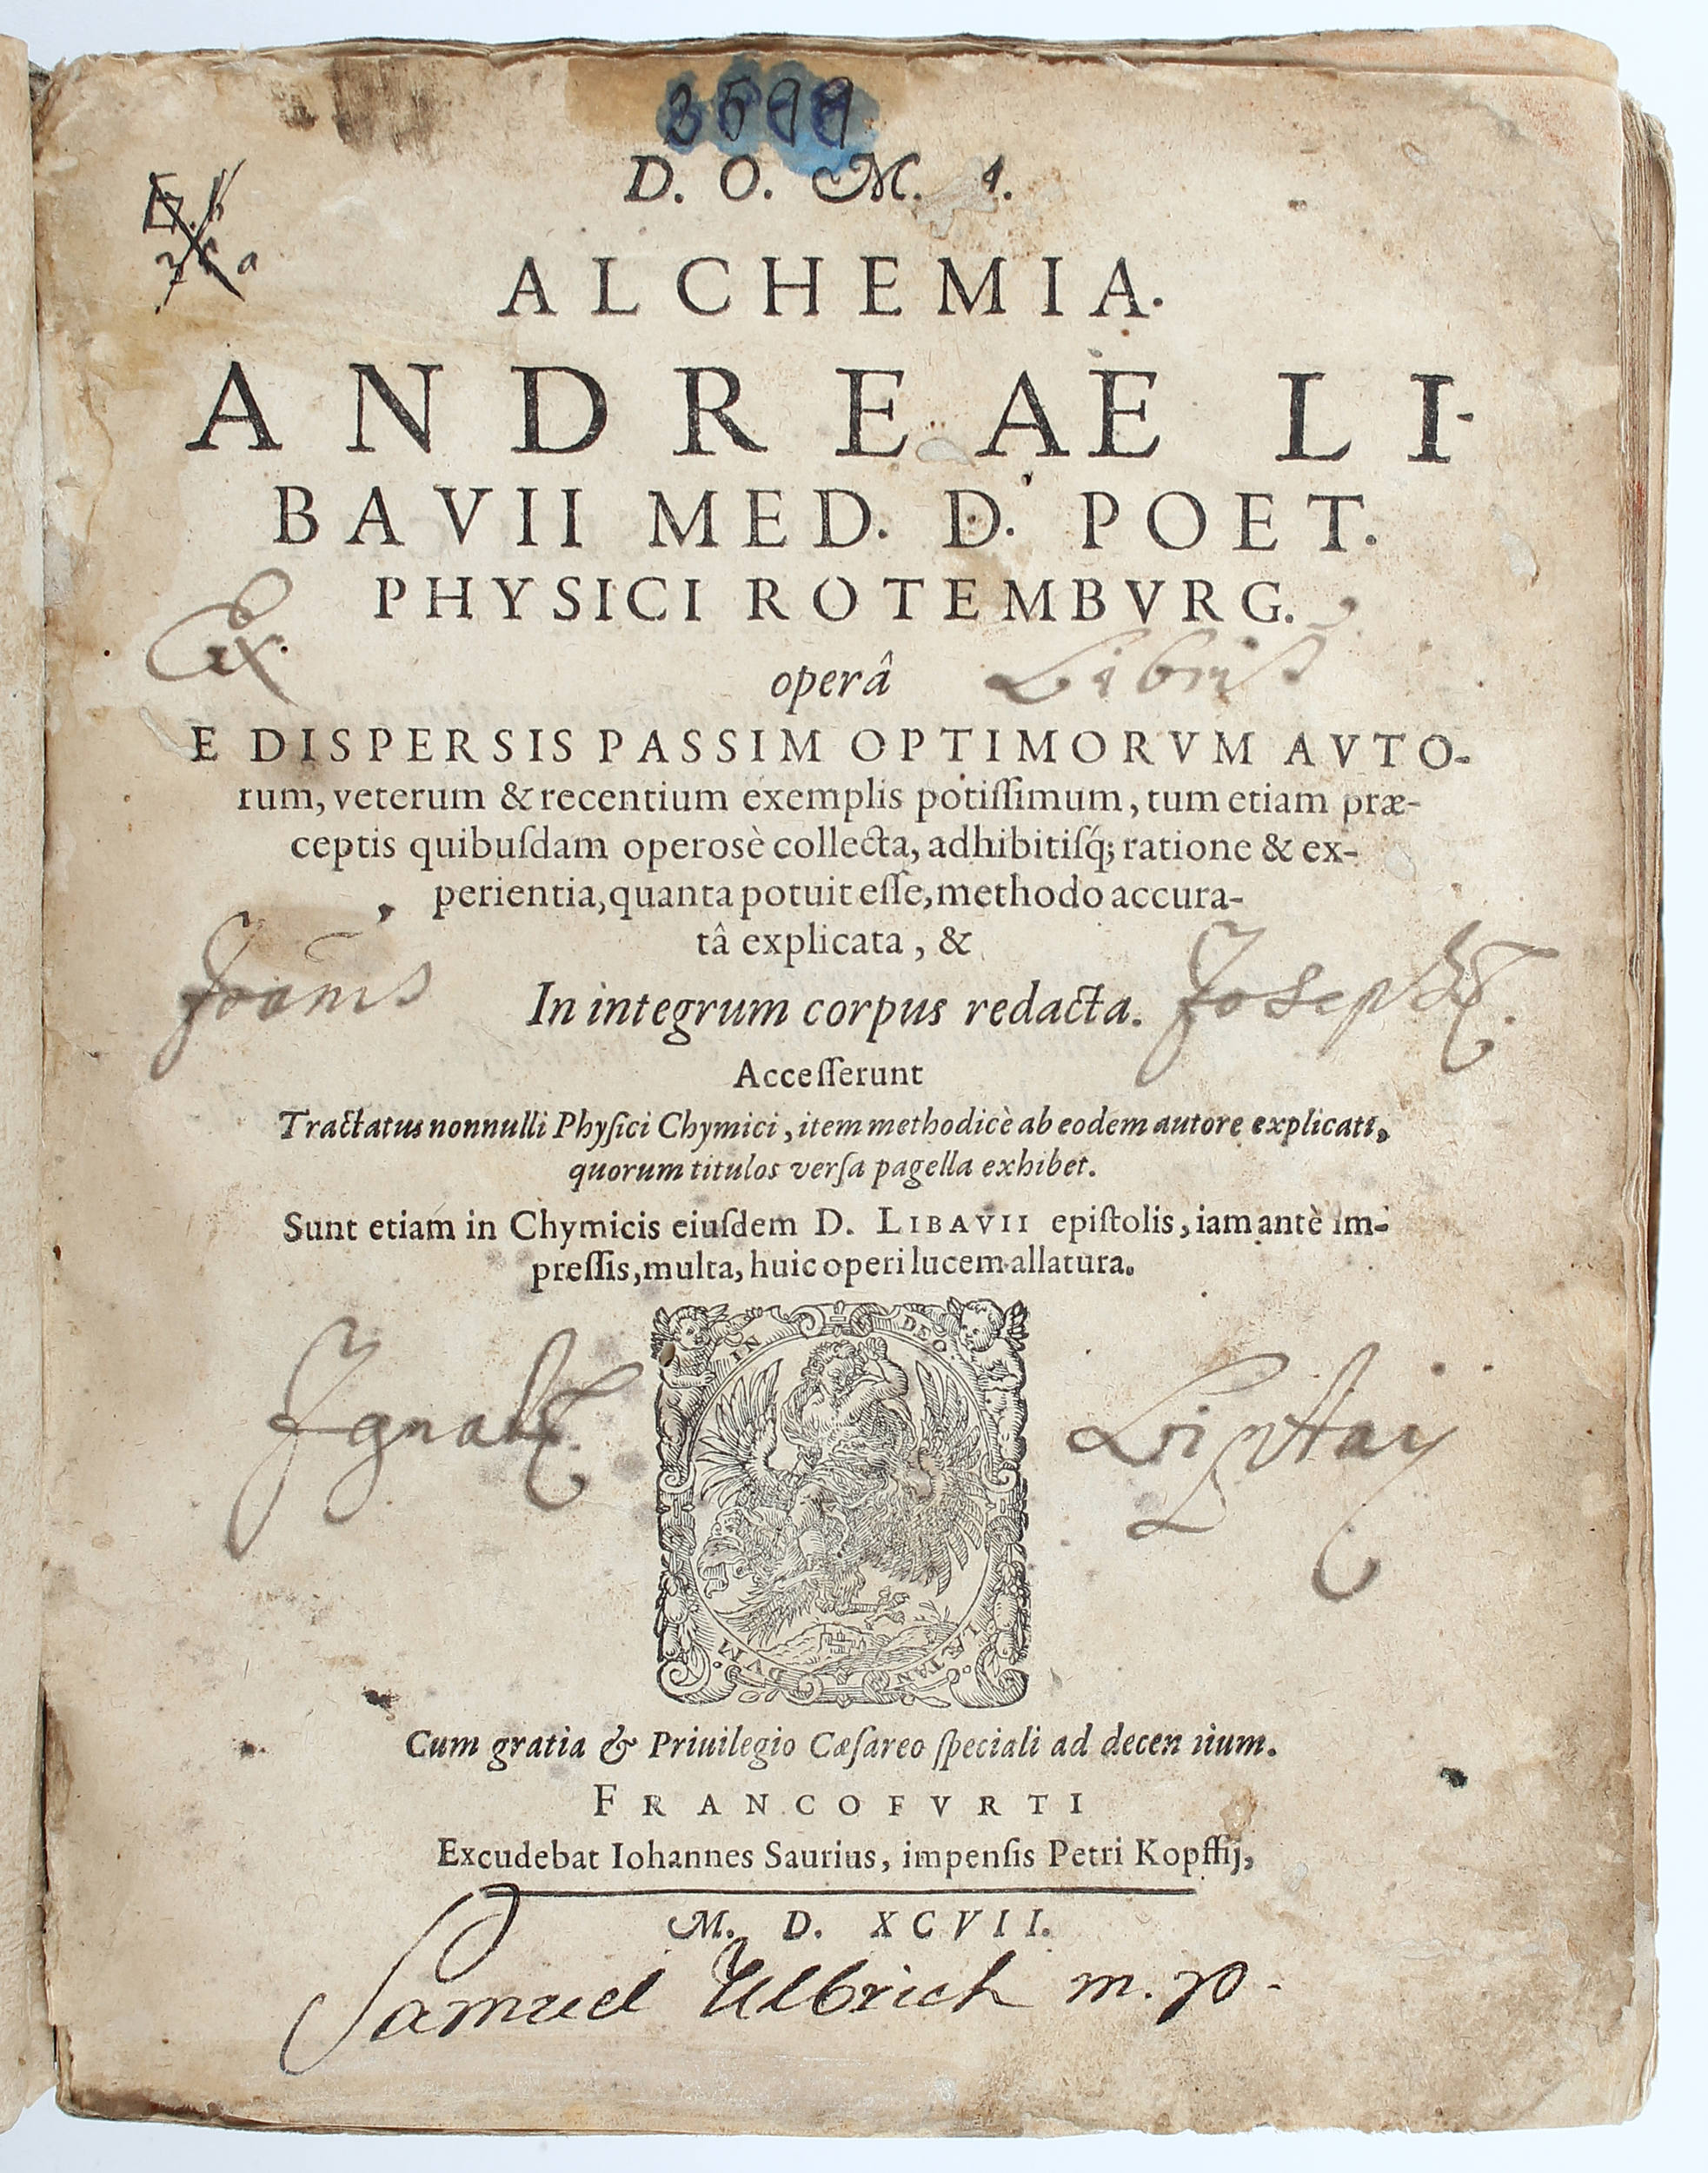 3599
D. O. M. A.
ALCHEMIA.
ANDREAE LI-
BAVII MED. D. POET.
PHYSICI ROTEMBVRG.
Ex Libris
operâ
E DISPERSIS PASSIM OPTIMORVM AVTO-
rum, veterum & recentium exemplis potiſſimum, tum etiam præ-
ceptis quibuſdam operosè collecta, adhibitiſq́; ratione & ex-
perientia, quanta potuit eſſe, methodo accura-
tâ explicata, &
Joānis Josephi
In integrum corpus redacta.
Acceſſerunt
Tractatus nonnulli Phyſici Chymici, item methodicè ab eodem autore explicati,
quorum titulos verſa pagella exhibet.
Sunt etiam in Chymicis eiuſdem D. LIBAVII epiſtolis, iam antè im-
preſſis, multa, huic operi lucem allatura.
IN DEO LÆTANDVM.
Ignatii Liptay
Cum gratia & Priuilegio Cæſareo ſpeciali ad decennium.
FRANCOFVRTI
Excudebat Iohannes Saurius, impenſis Petri Kopffij,
M. D. XCVII.
Samuel Ulbrich m. p.